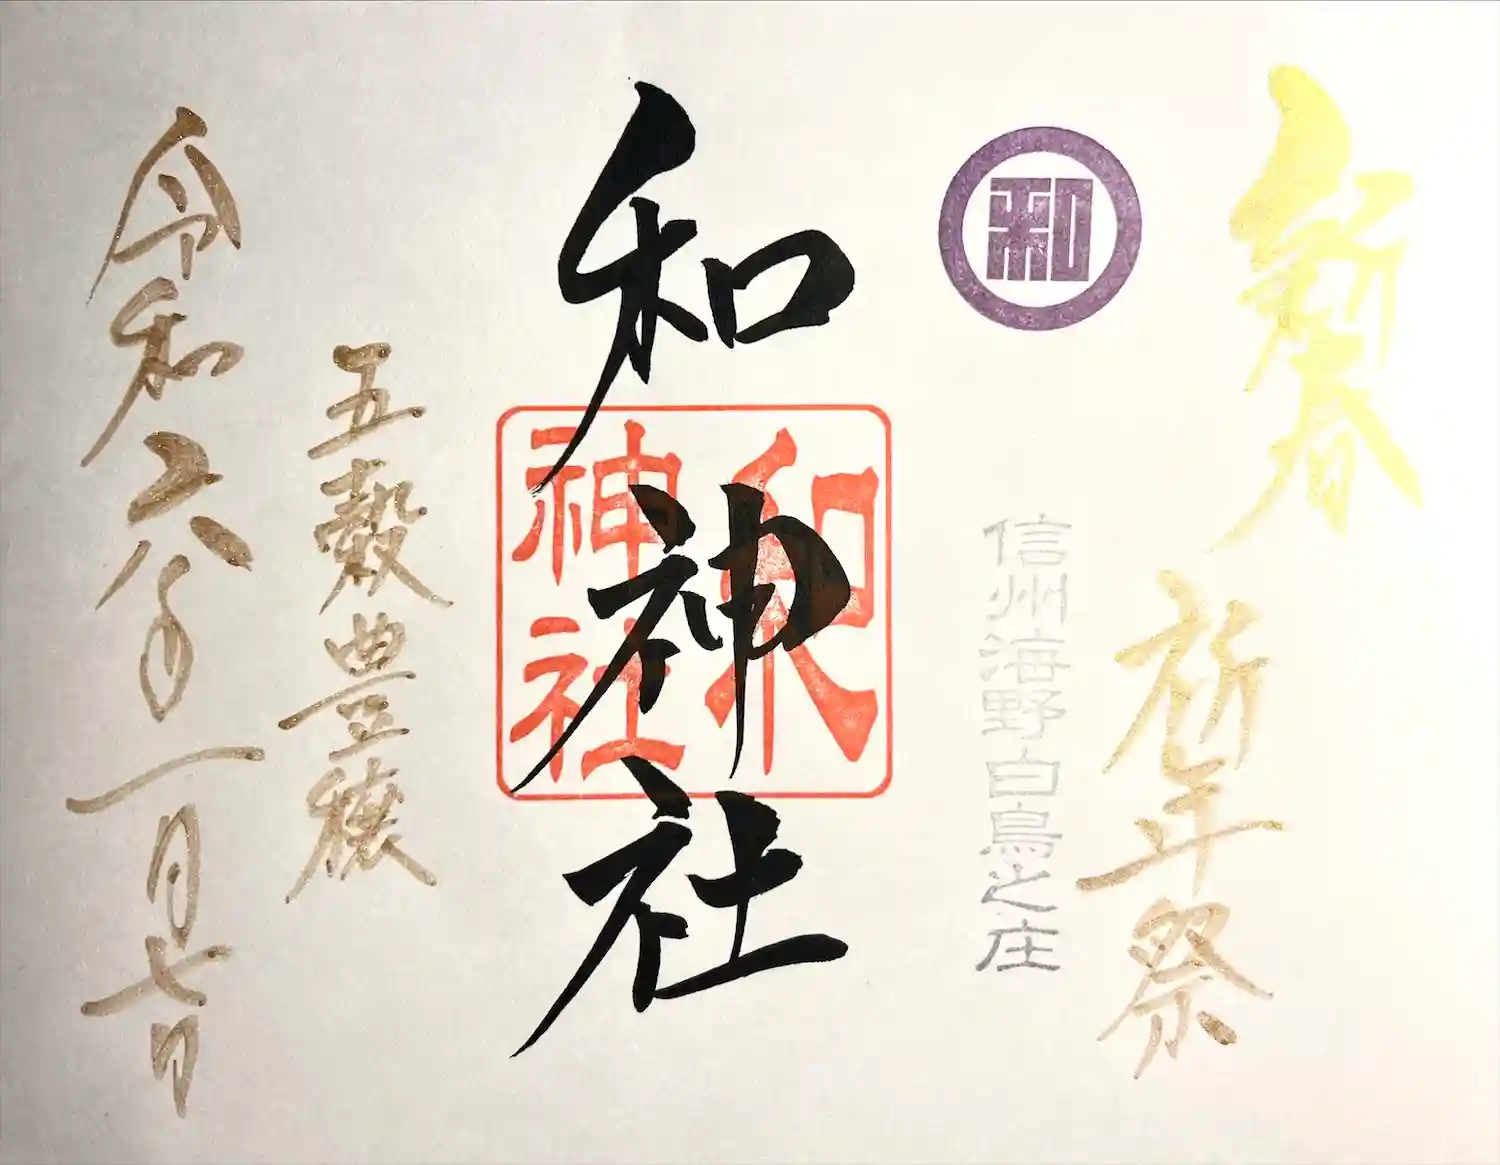 新春
祈年祭
和
信州海野白鳥之庄
和神社
和神社
五穀豊穣
令和六年一月七日